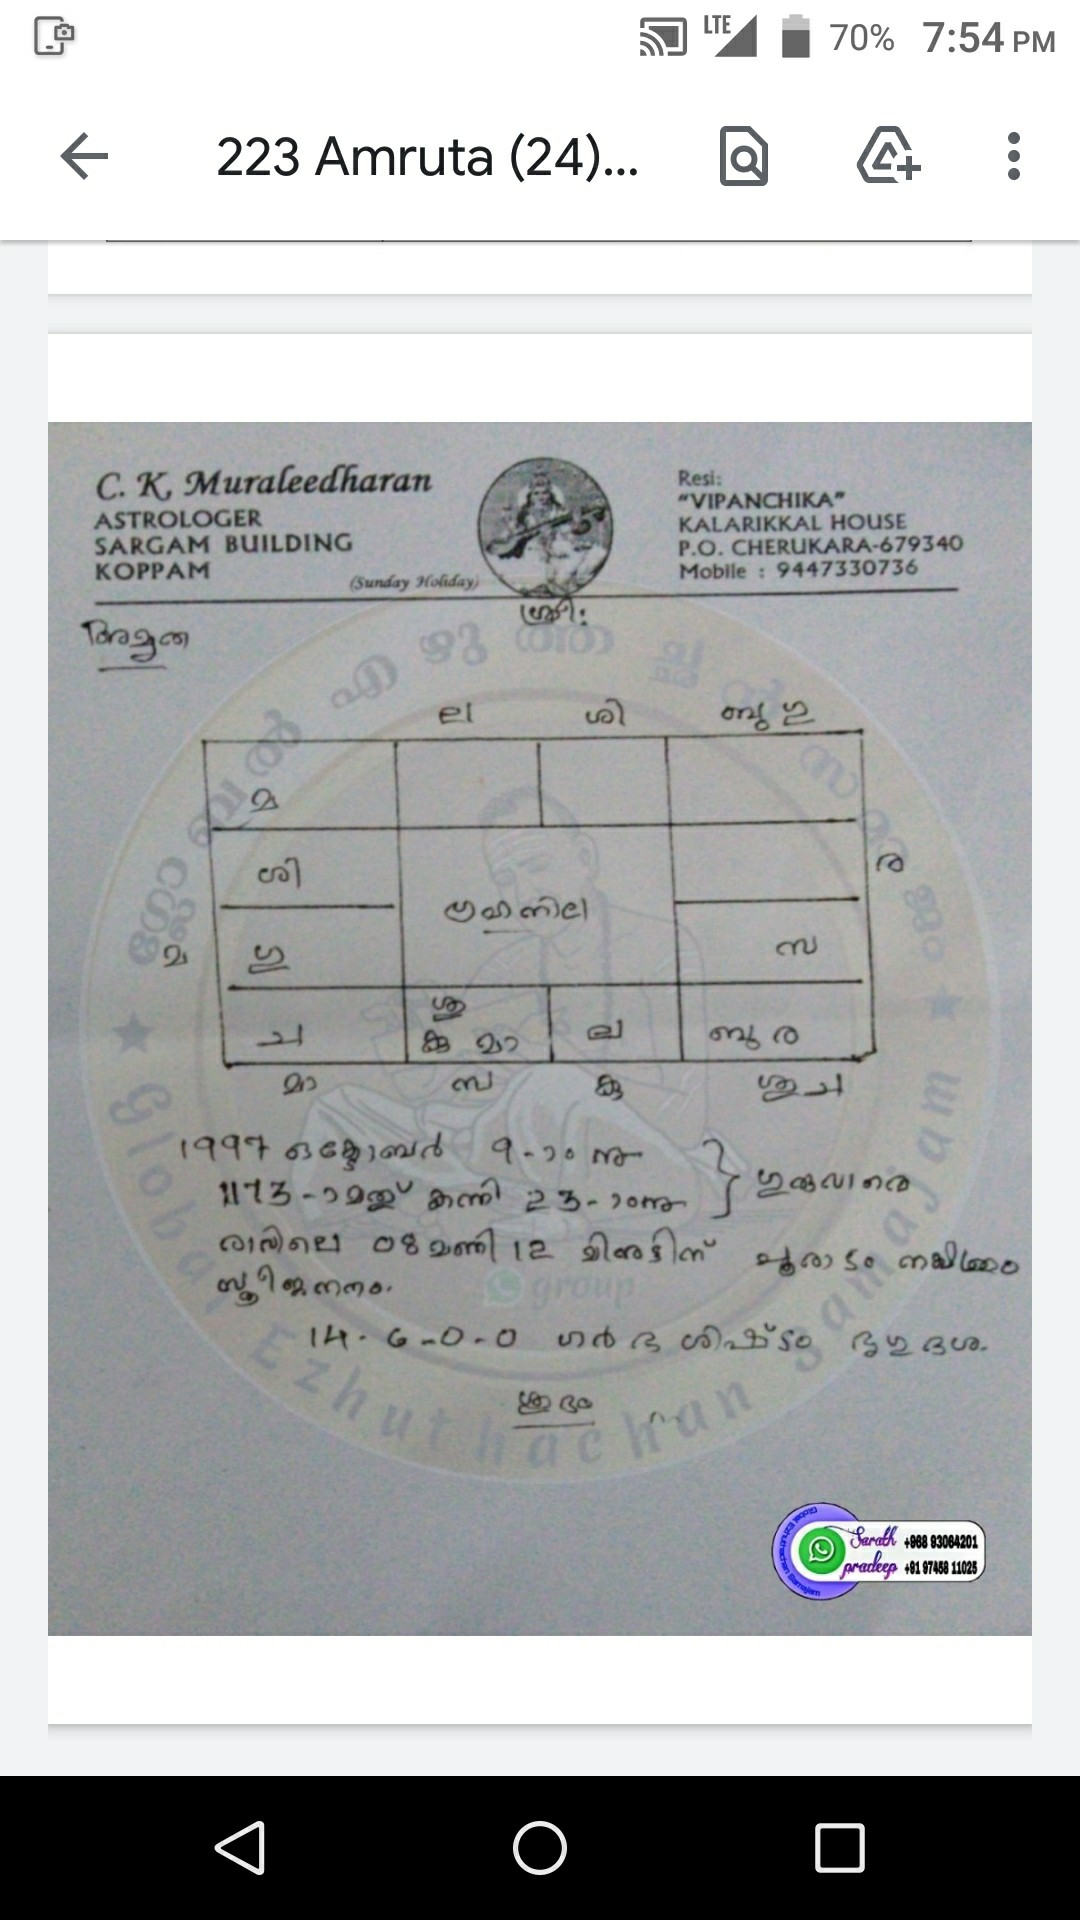 LTE 70% 7:54 PM
223 Amruta (24)...
C. K. Muraleedharan
ASTROLOGER
SARGAM BUILDING
KOPPAM
(Sunday Holiday)
Resi:
"VIPANCHIKA"
KALARIKKAL HOUSE
P.O. CHERUKARA-679340
Mobile : 9447330736
ശ്രീ:
അമൃത
ല ശി ബു ഗു
മ
ശി ര
ഗ്രഹനില
മ ഗു സ
ശു
ച കു മാ ല ബു ര
മാ സ കു ശു ച
1997 ഒക്ടോബർ 9-ാം നു
1173-ാമത് കന്നി 23-ാംനു ഗുരുവാരെ
രാവിലെ 08 മണി 12 മിനുട്ടിന് പൂരാടം നക്ഷത്രം
സ്ത്രീജനനം.
14-6-0-0 ഗർഭ ശിഷ്ടം ദശ.
ശുഭം
group
Global Ezhuthachan Samajam
Sarath +968 93064201
pradeep +91 97458 11025